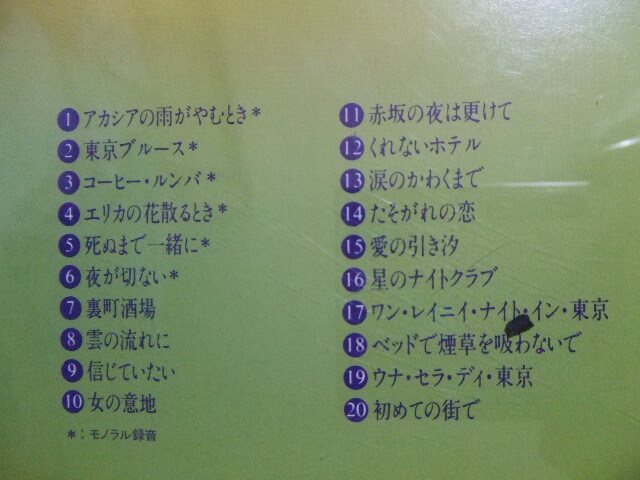 1 アカシアの雨がやむとき*
2 東京ブルース*
3 コーヒー・ルンバ*
4 エリカの花散るとき*
5 死ぬまで一緒に*
6 夜が切ない*
7 裏町酒場
8 雲の流れに
9 信じていたい
10 女の意地
*:モノラル録音
11 赤坂の夜は更けて
12 くれないホテル
13 涙のかわくまで
14 たそがれの恋
15 愛の引き汐
16 星のナイトクラブ
17 ワン・レイニイ・ナイト・イン・東京
18 ベッドで煙草を吸わないで
19 ウナ・セラ・ディ・東京
20 初めての街で